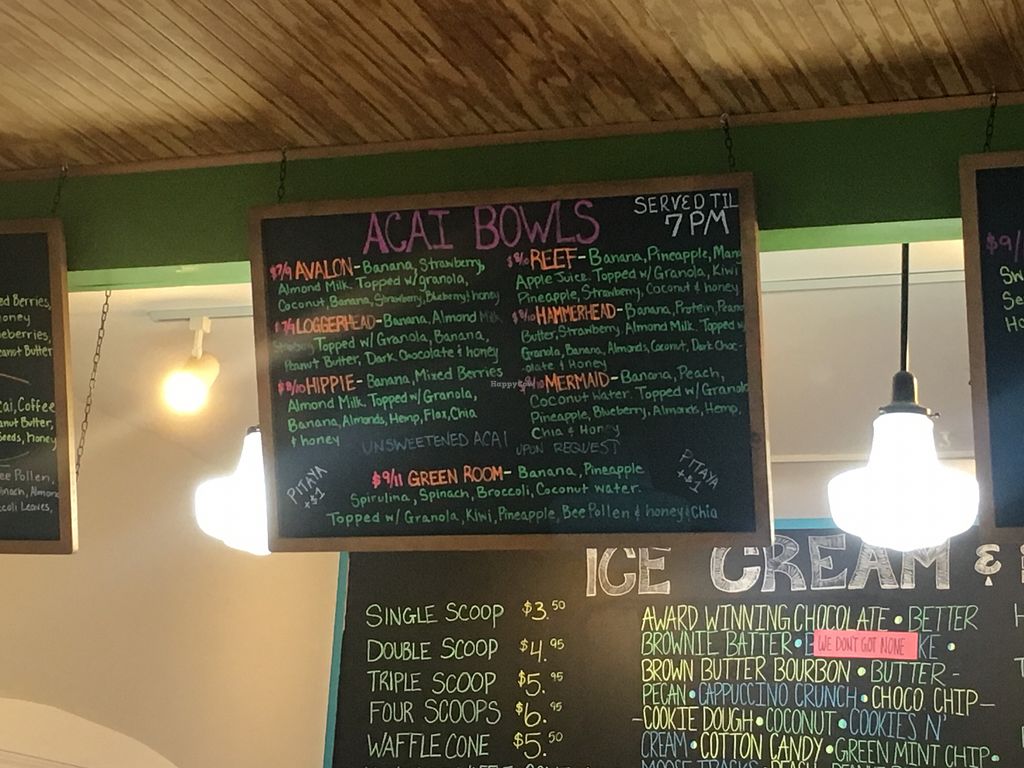 ACAI BOWLS
SERVED TIL
7 PM
$7/9 AVALON - Banana, Strawberry,
Almond Milk. Topped w/ granola,
Coconut, Banana, Strawberry, Blueberry & honey
$7/9 LOGGERHEAD - Banana, Almond Milk
Topped w/ Granola, Banana,
Peanut Butter, Dark Chocolate & honey
$8/10 HIPPIE - Banana, Mixed Berries
Almond Milk. Topped w/ Granola,
Banana, Almonds, Hemp, Flax, Chia
& honey
$8/10 REEF - Banana, Pineapple, Man
Apple Juice. Topped w/ Granola, Kiwi
Pineapple, Strawberry, Coconut & honey
$8/10 HAMMERHEAD - Banana, Protein, Peanu
Butter, Strawberry, Almond Milk. Topped w/
Granola, Banana, Almonds, Coconut, Dark Choc-
olate & Honey
MERMAID - Banana, Peach,
Coconut Water. Topped w/ Granola
Pineapple, Blueberry, Almonds, Hemp,
Chia & Honey
UNSWEETENED ACAI UPON REQUEST
PITAYA
+$1
$9/11 GREEN ROOM - Banana, Pineapple
Spirulina, Spinach, Broccoli, Coconut water.
Topped w/ Granola, Kiwi, Pineapple, Bee Pollen & honey & Chia
PITAYA
+$1
HappyCow
ed Berries,
oney
ueberries,
eanut Butter
cai, Coffee
anut Butter,
Seeds, honey
ee Pollen,
inach, Almond
ccoli Leaves,
$9/
Sw
Se
Ho
ICE CREAM &
SINGLE SCOOP $3.50
DOUBLE SCOOP $4.95
TRIPLE SCOOP $5.95
FOUR SCOOPS $6.95
WAFFLE CONE $5.50
AWARD WINNING CHOCOLATE • BETTER
BROWNIE BATTER • B WE DON'T GOT NONE KE •
BROWN BUTTER BOURBON • BUTTER -
PECAN • CAPPUCCINO CRUNCH • CHOCO CHIP -
- COOKIE DOUGH • COCONUT • COOKIES N'
CREAM • COTTON CANDY • GREEN MINT CHIP •
MOOSE TRACKS • PEACH